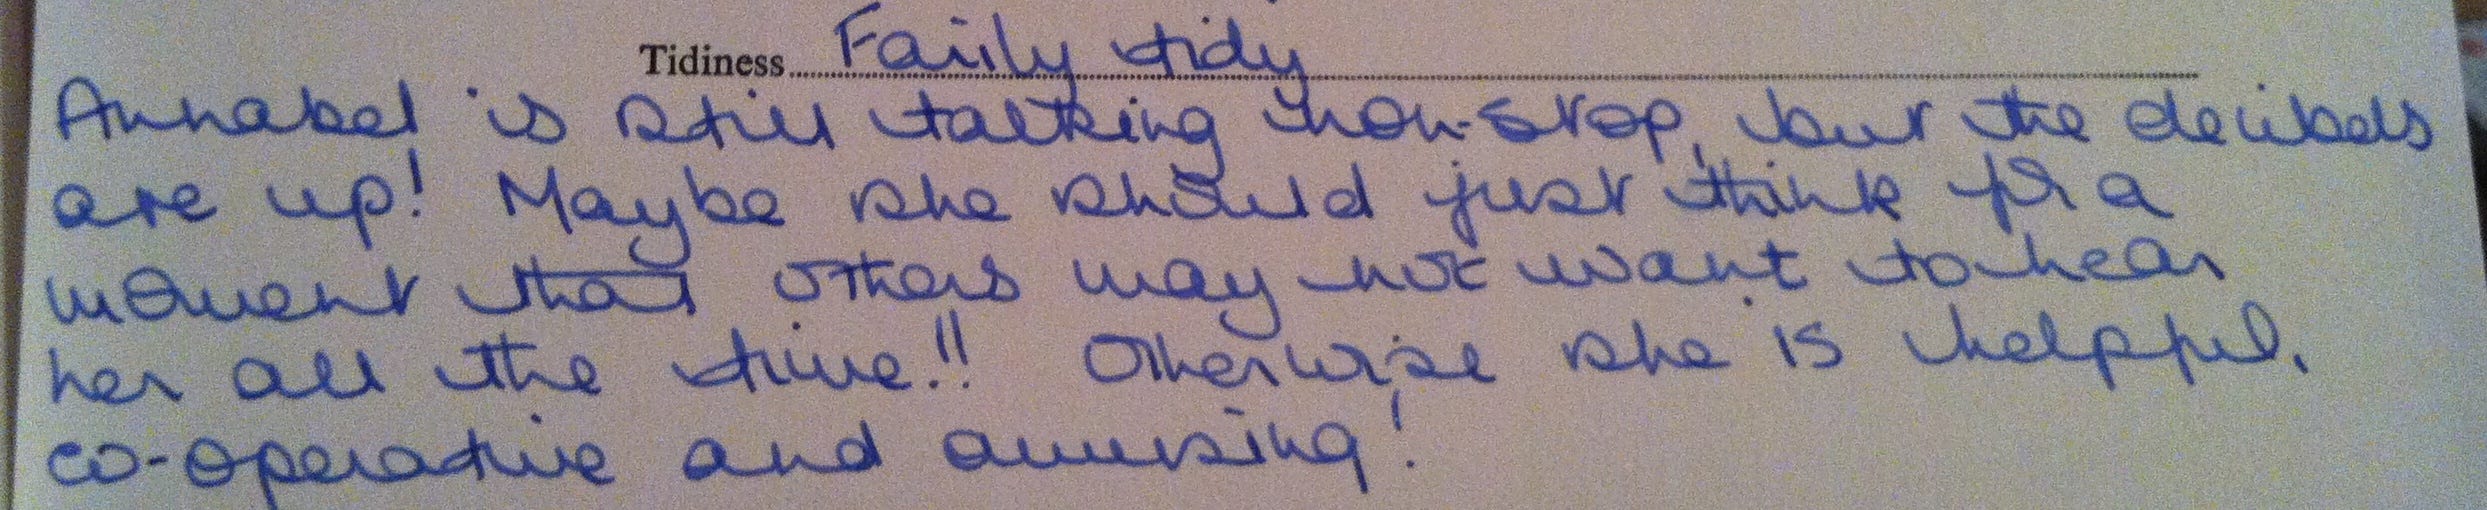 Tidiness Fairly tidy
Annabel is still talking non-stop, but the decibels
are up! Maybe she should just think for a
moment that others may not want to hear
her all the time!! Otherwise she is helpful,
co-operative and amusing!